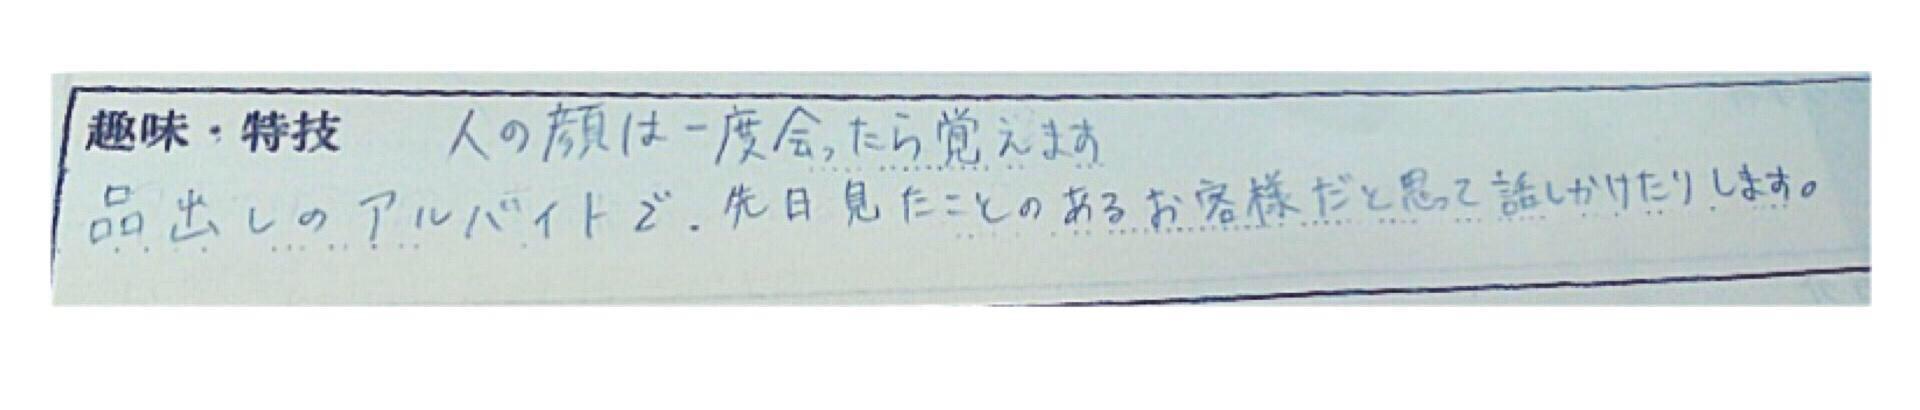 趣味・特技 人の顔は一度会ったら覚えます
品出しのアルバイトで、先日見たことのあるお客様だと思って話しかけたりします。